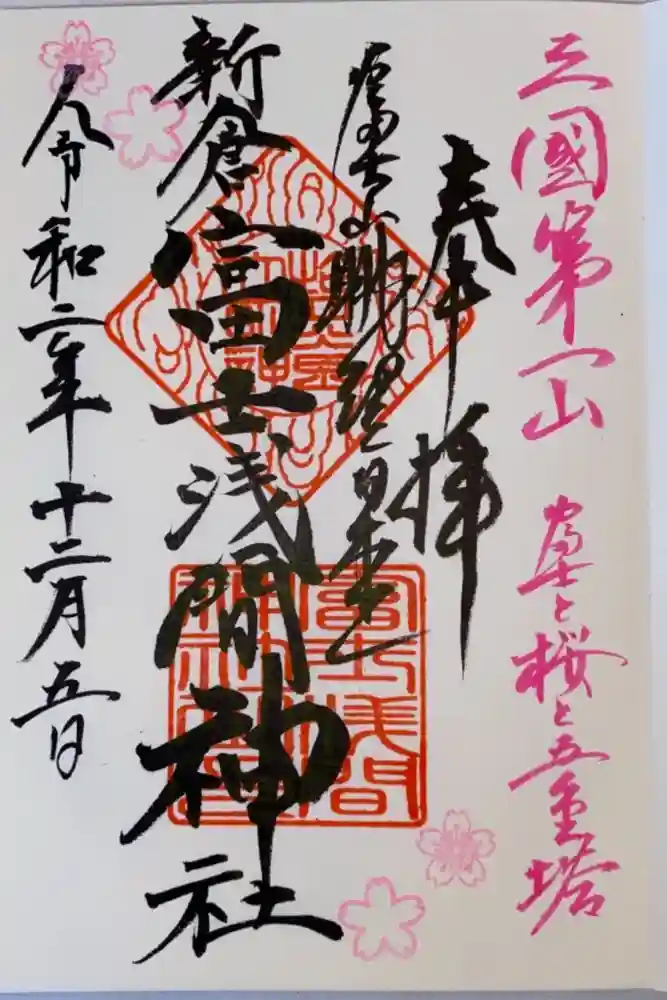 三國第一山
富士と桜と五重塔
奉拝
富士山眺望日本一
新倉富士浅間神社
令和二年十二月五日
富士浅間